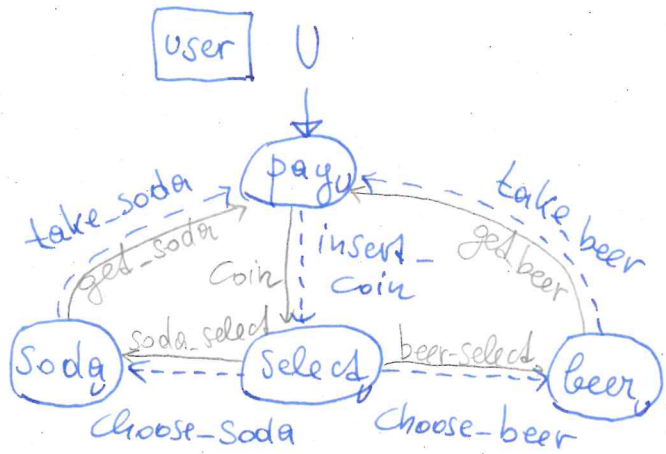 user U
pay_U
take_soda
get_soda
coin
insert_
coin
take_beer
get_beer
soda_U
soda_select
select_U
beer_select
beer_U
choose_soda
choose_beer